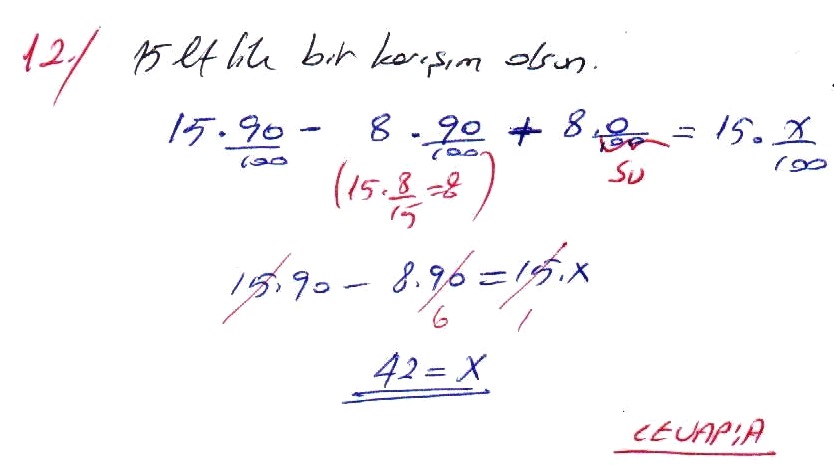 12./ 15 lt lik bir karışım olsun.
15 . 90/100 - 8 . 90/100 + 8 . 0/100 = 15 . x/100
(15 . 8/15 = 8) su
15 . 90 - 8 . 90 = 15 . x
6 1
42 = x
CEVAP: A